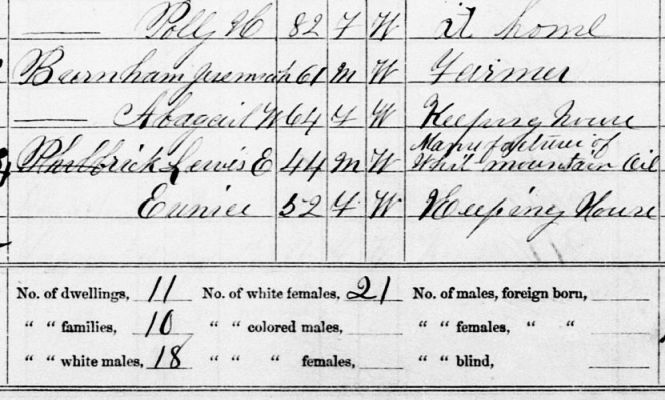 —— Polly H 82 F W at home
Burnham Jeremiah 61 M W Farmer
—— Abagail W 64 F W Keeping House
Philbrick Lewis E 44 M W Manufacture of
Whit mountain Oil
Eunice 52 F W Keeping House
No. of dwellings, 11 No. of white females, 21 No. of males, foreign born,
" " families, 10 " " colored males, " " females, " "
" " white males, 18 " " " females, " " blind,